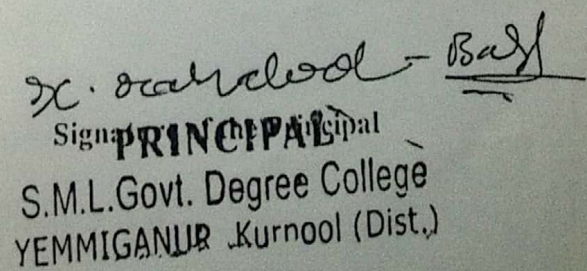 Signature of the Principal
PRINCIPAL
S.M.L.Govt. Degree College
YEMMIGANUR Kurnool (Dist.)